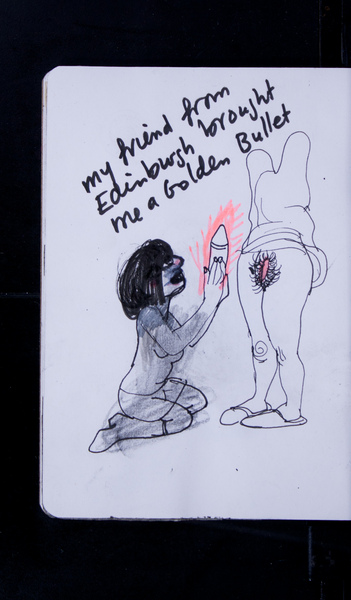 my friend from
Edinburgh brought
me a Golden Bullet